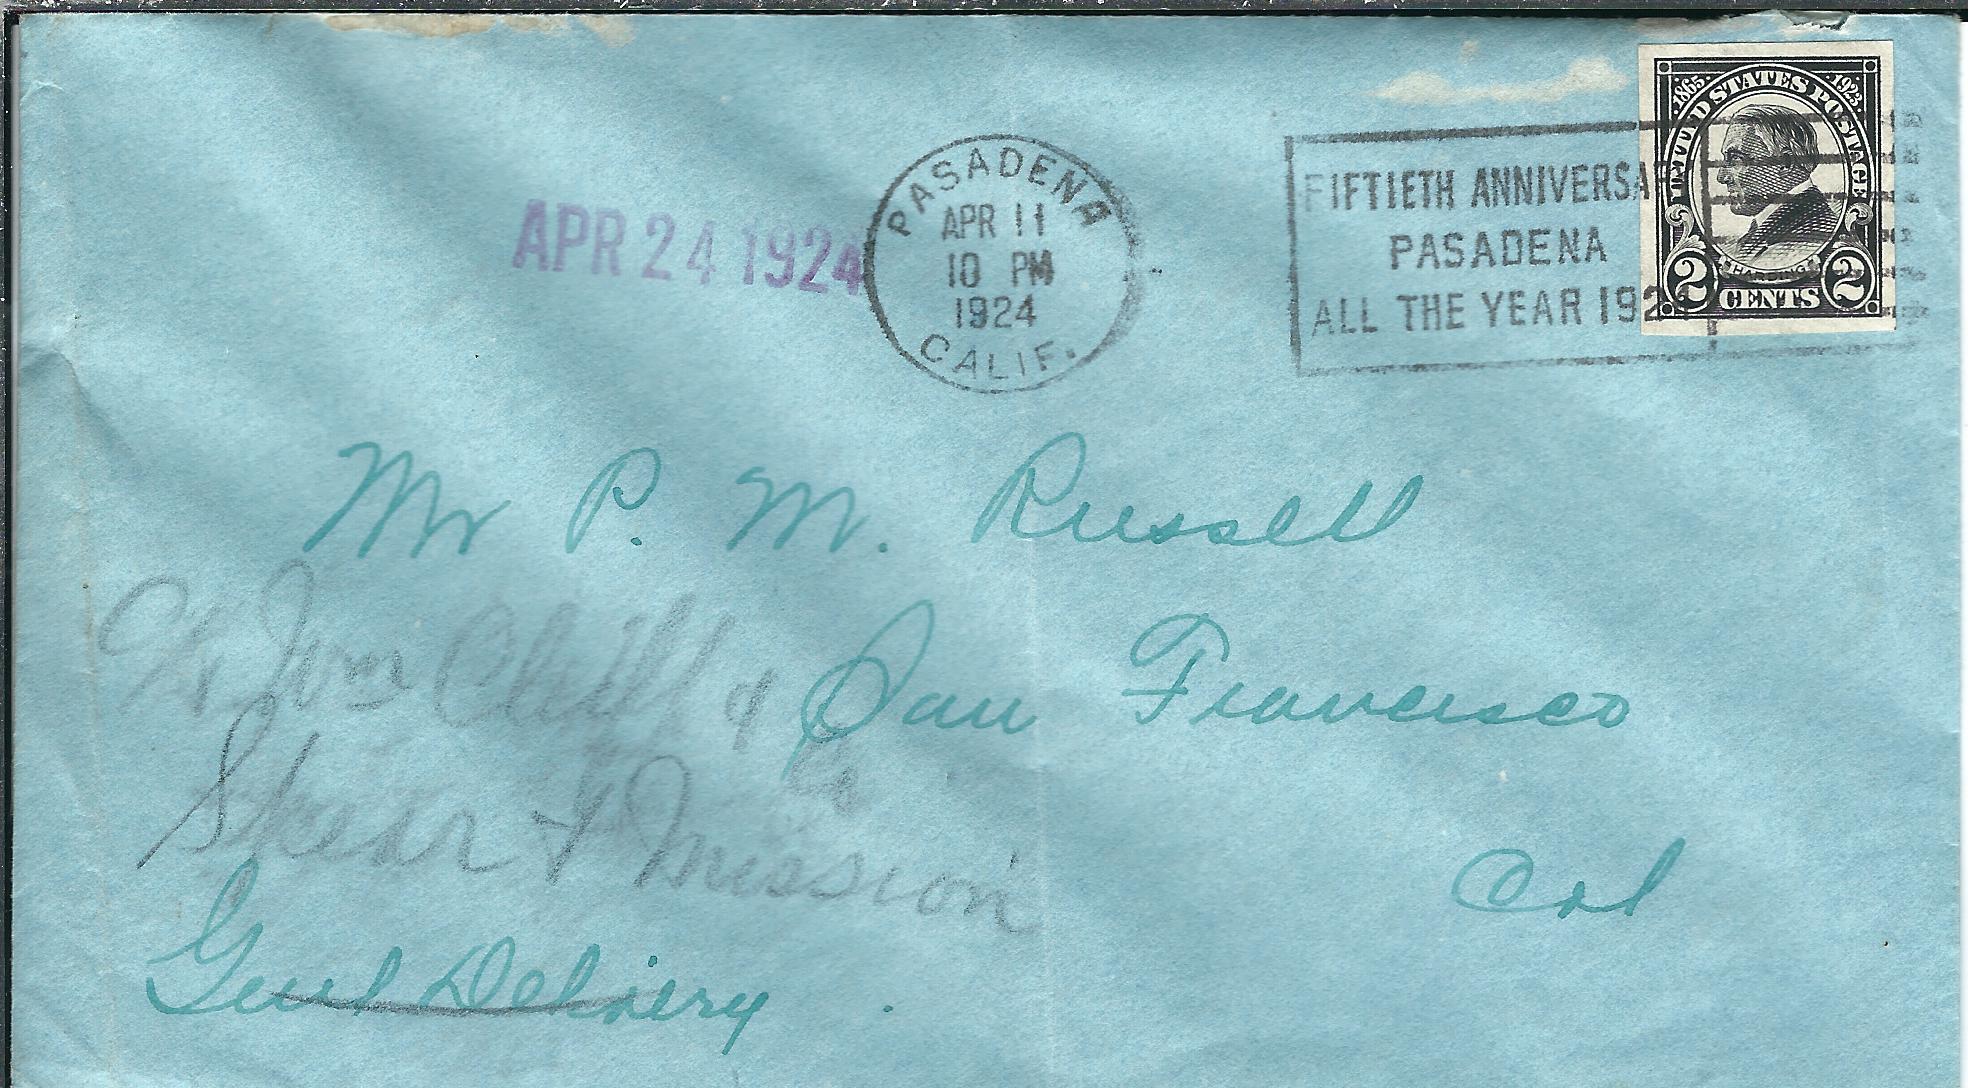 1865 UNITED STATES POSTAGE 1923
HARDING
2 CENTS 2
PASADENA
APR 11
10 PM
1924
CALIF.
FIFTIETH ANNIVERSA
PASADENA
ALL THE YEAR 1924
APR 24 1924
Mr P. M. Russell
San Francisco
Cal
Wm Cluff &
Co
Spear & Mission
Genl Delivery